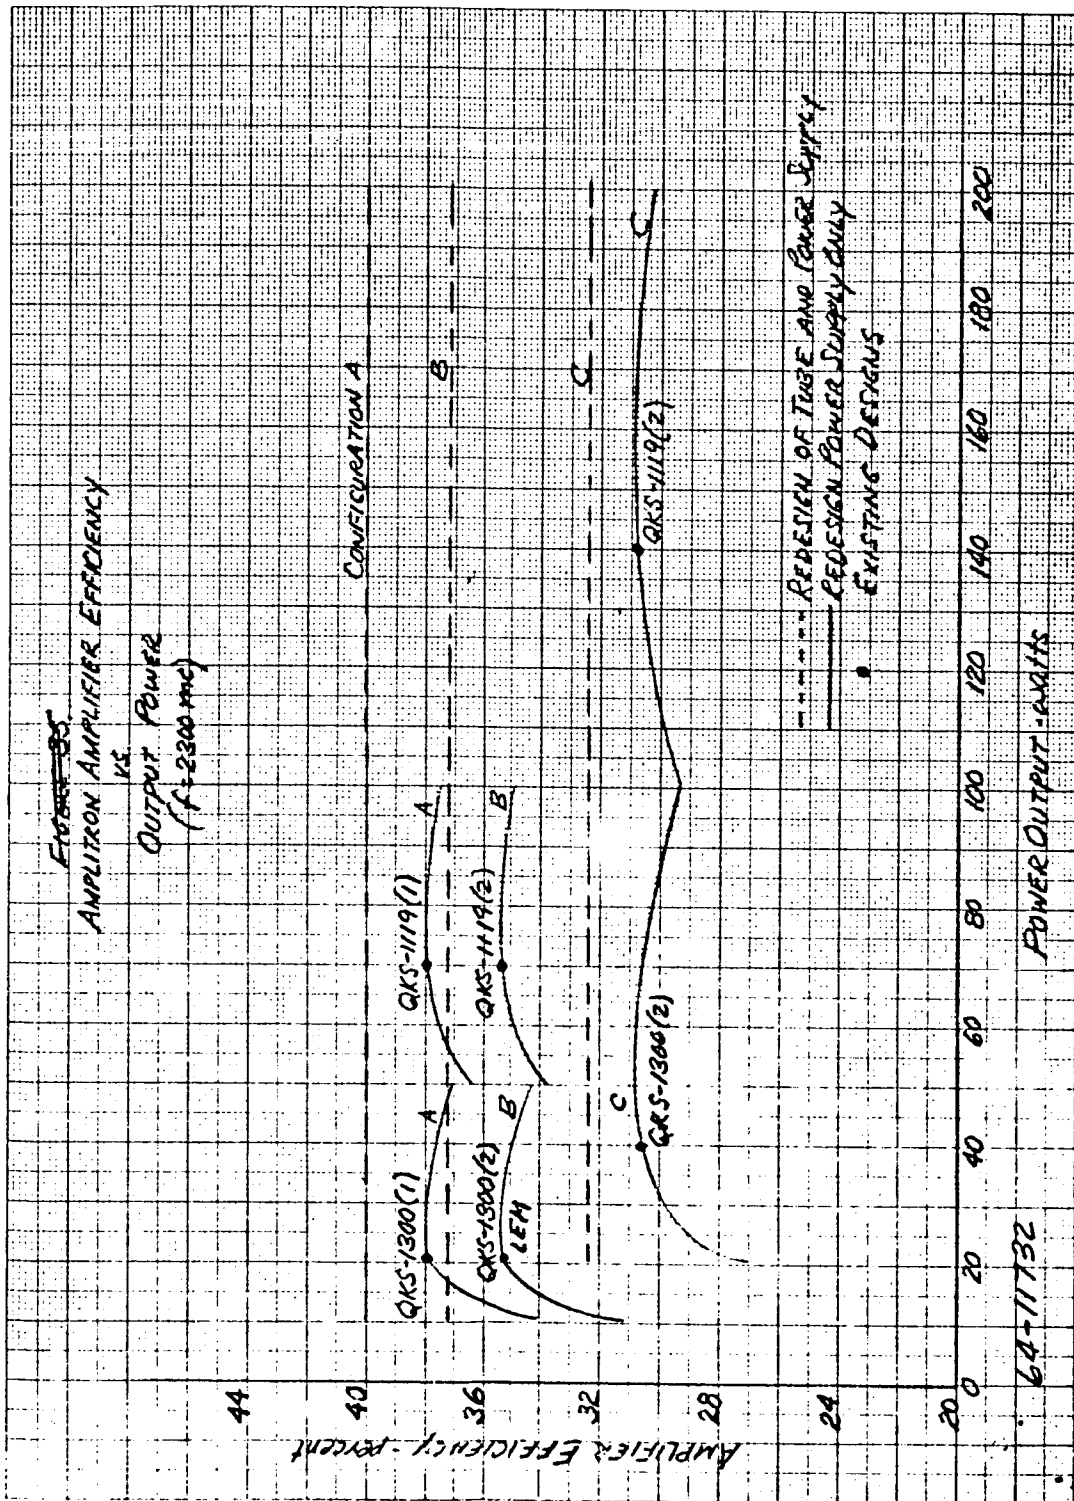 FIGURE 35.
AMPLITRON AMPLIFIER EFFICIENCY
VS
OUTPUT POWER
(f=2300 mc)
CONFIGURATION A
B
C
QKS-1300(1)
A
QKS-1119(1)
A
QKS-1300(2)
LEM
B
QKS-1119(2)
B
C
QKS-1300(2)
QKS-1119(2)
C
REDESIGN OF TUBE AND POWER SUPPLY
REDESIGN POWER SUPPLY ONLY
EXISTING DESIGNS
AMPLIFIER EFFICIENCY - percent
44
40
36
32
28
24
20
0 20 40 60 80 100 120 140 160 180 200
POWER OUTPUT - watts
64-11732